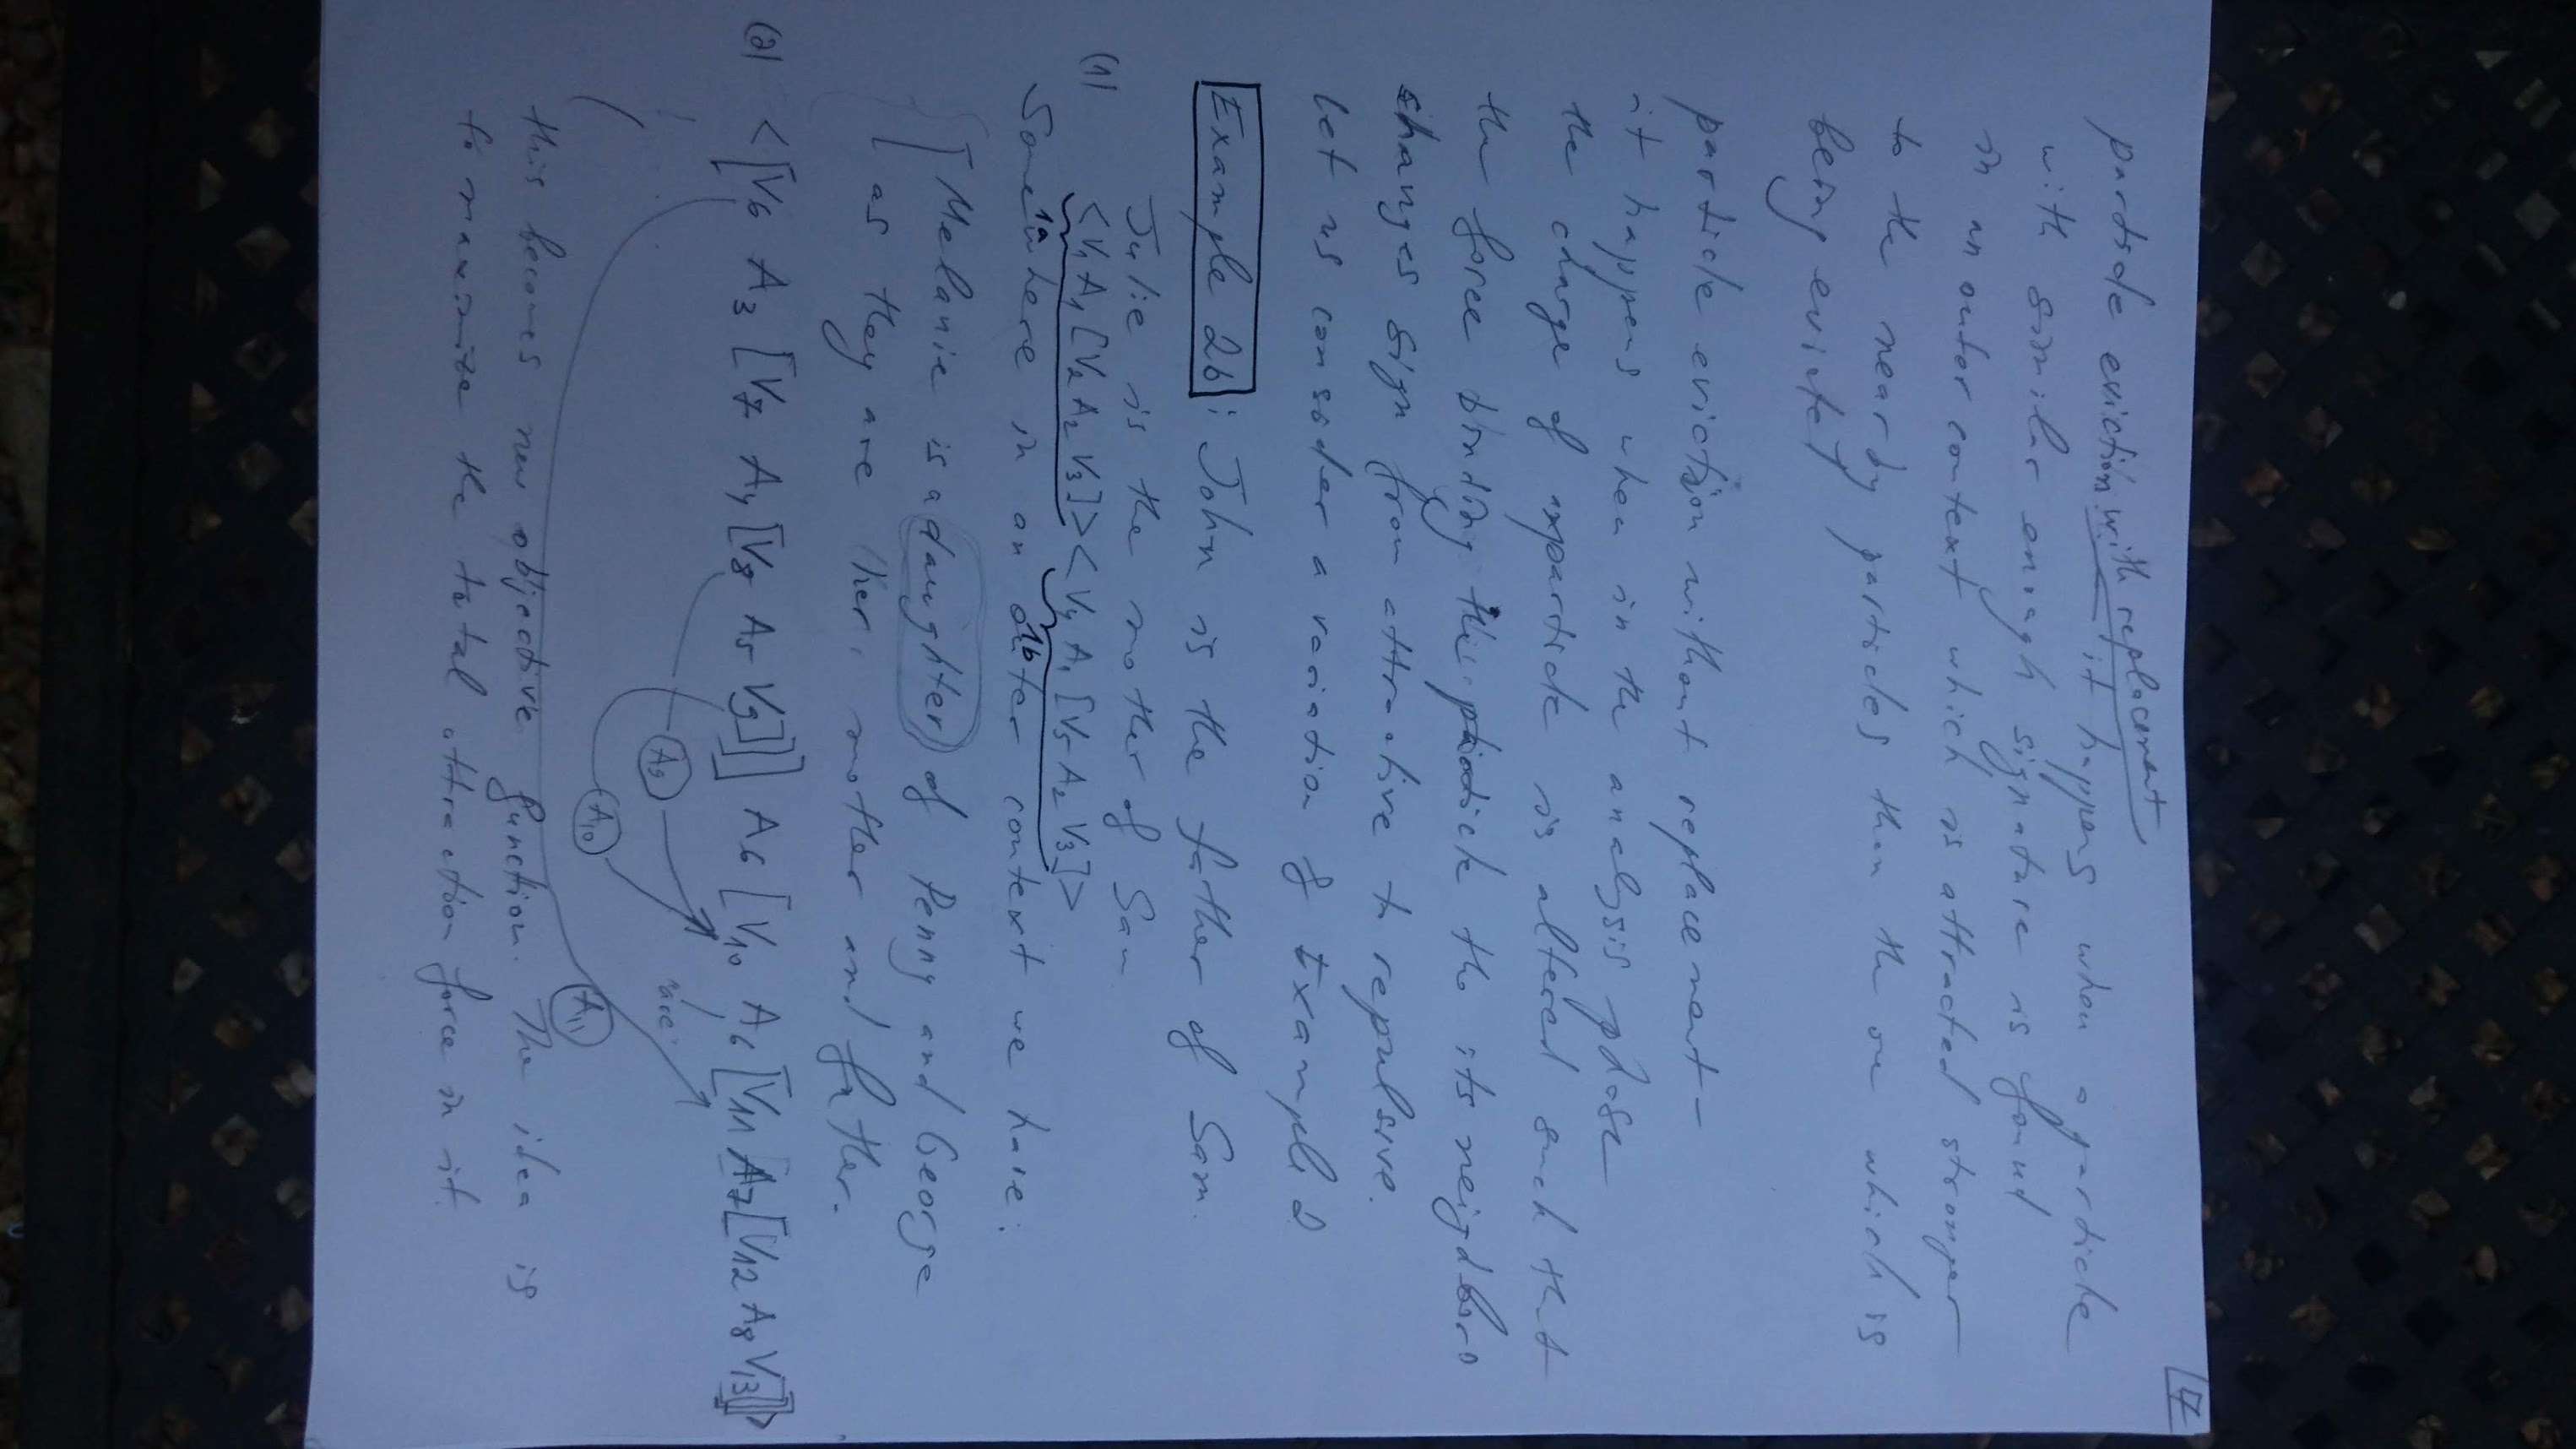 7
particle eviction with replacement
it happens when a particle
with similar enough signature is found
in an outer context which is attracted stronger
to the nearby particles than the one which is
being evicted
particle eviction without replacement -
it happens when in the analysis phase
the charge of particle is altered such that
the force binding this particle the its neighbors
changes sign from attractive to repulsive.
Let us consider a variation of Example 2
Example 2b: John is the father of Sam.
Julie is the mother of Sam
(1) <V1 A1 [V2 A2 V3]> <V4 A1 [V5 A2 V3]>
1a 1b
Somewhere in an outer context we have:
Melanie is a daughter of Penny and George
as they are her mother and father.
(2) <[V6 A3 [V7 A4 [V8 A5 V9]]] A6 [V10 A6 [V11 A7 [V12 A8 V13]]>
A9
A10
A11
this becomes new objective function. The idea is
to maximize the total attraction force in it.